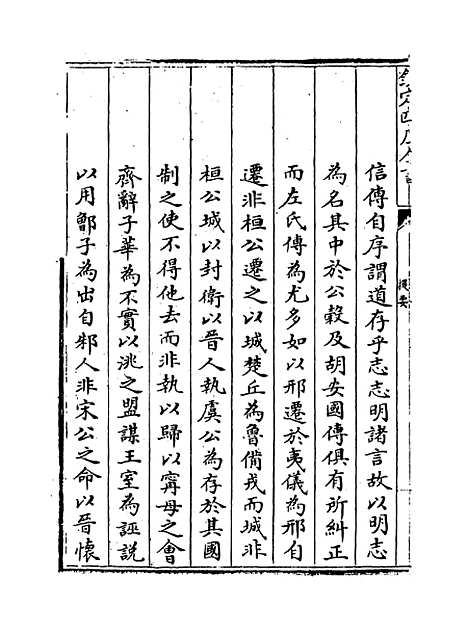 欽定四庫全書
提要
信傳自序謂道存乎志志明諸言故以明志
為名其中於公穀及胡安國傳俱有所糾正
而左氏傳為尤多如以邢遷於夷儀為邢自
遷非桓公遷之以城楚丘為魯備戎而城非
桓公城以封衛以晉人執虞公為存於其國
制之使不得他去而非執以歸以甯母之會
齊辭子華為不實以洮之盟謀王室為誣說
以用鄫子為出自邾人非宋公之命以晉懷